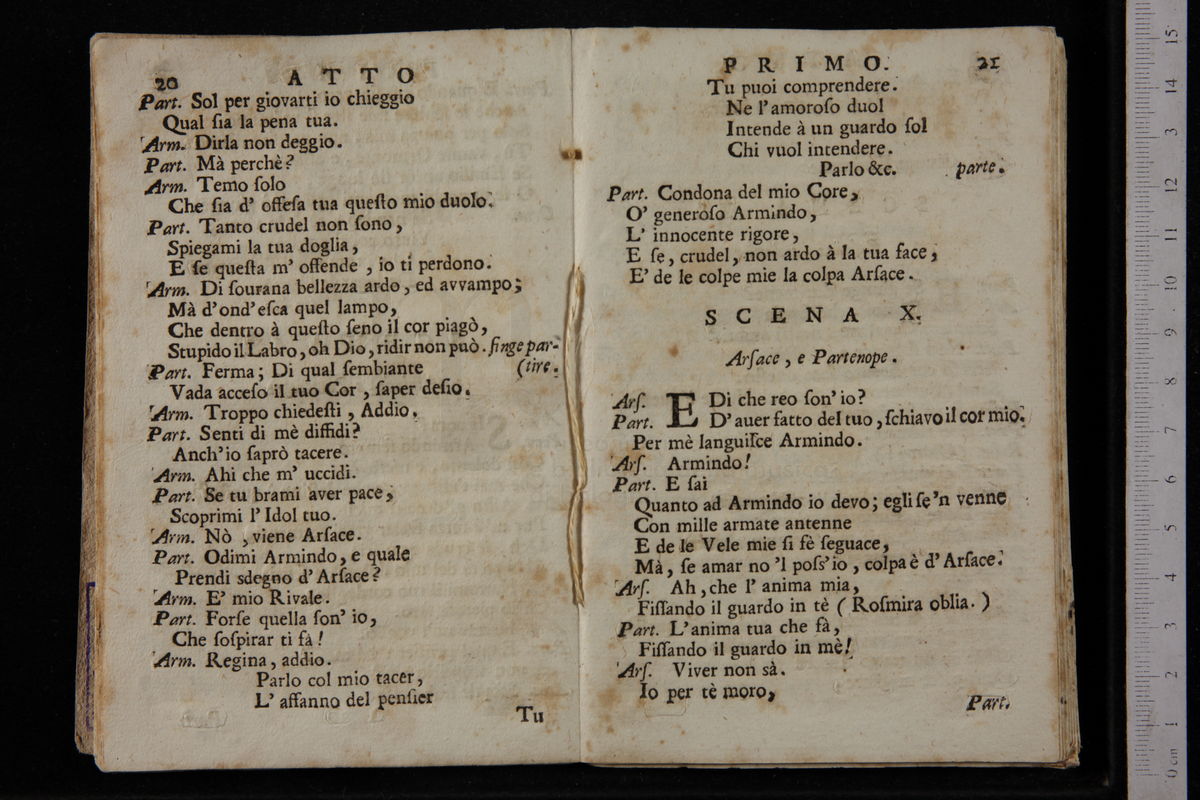 20 ATTO
Part. Sol per giovarti io chieggio
Qual ſia la pena tua.
Arm. Dirla non deggio.
Part. Mà perchè?
Arm. Temo ſolo
Che ſia d' offeſa tua queſto mio duolo.
Part. Tanto crudel non ſono,
Spiegami la tua doglia,
E ſe queſta m' offende, io ti perdono.
Arm. Di ſourana bellezza ardo, ed avvampo;
Mà d'ond'eſca quel lampo,
Che dentro à queſto ſeno il cor piagò,
Stupido il Labro, oh Dio, ridir non può. finge par-
(tire.
Part. Ferma; Di qual ſembiante
Vada acceſo il tuo Cor, ſaper deſio.
Arm. Troppo chiedeſti, Addio.
Part. Senti di mè diffidi?
Anch'io ſaprò tacere.
Arm. Ahi che m' uccidi.
Part. Se tu brami aver pace,
Scoprimi l'Idol tuo.
Arm. Nò, viene Arſace.
Part. Odimi Armindo, e quale
Prendi sdegno d'Arſace?
Arm. E' mio Rivale.
Part. Forſe quella ſon' io,
Che ſoſpirar ti fà!
Arm. Regina, addio.
Parlo col mio tacer,
L' affanno del penſier
Tu
PRIMO. 21
Tu puoi comprendere.
Ne l'amoroſo duol
Intende à un guardo ſol
Chi vuol intendere.
Parlo &c. parte.
Part. Condona del mio Core,
O' generoſo Armindo,
L' innocente rigore,
E ſe, crudel, non ardo à la tua face,
E' de le colpe mie la colpa Arſace.
SCENA X.
Arſace, e Partenope.
Arſ. E Di che reo ſon' io?
Part. D'auer fatto del tuo, ſchiavo il cor mio.
Per mè languiſce Armindo.
Arſ. Armindo!
Part. E ſai
Quanto ad Armindo io devo; egli ſe'n venne
Con mille armate antenne
E de le Vele mie ſi fè ſeguace,
Mà, ſe amar no 'l poſs'io, colpa è d'Arſace.
Arſ. Ah, che l' anima mia,
Fiſſando il guardo in tè (Roſmira oblia.)
Part. L'anima tua che fà,
Fiſſando il guardo in mè!
Arſ. Viver non sà.
Io per tè moro,
Part.